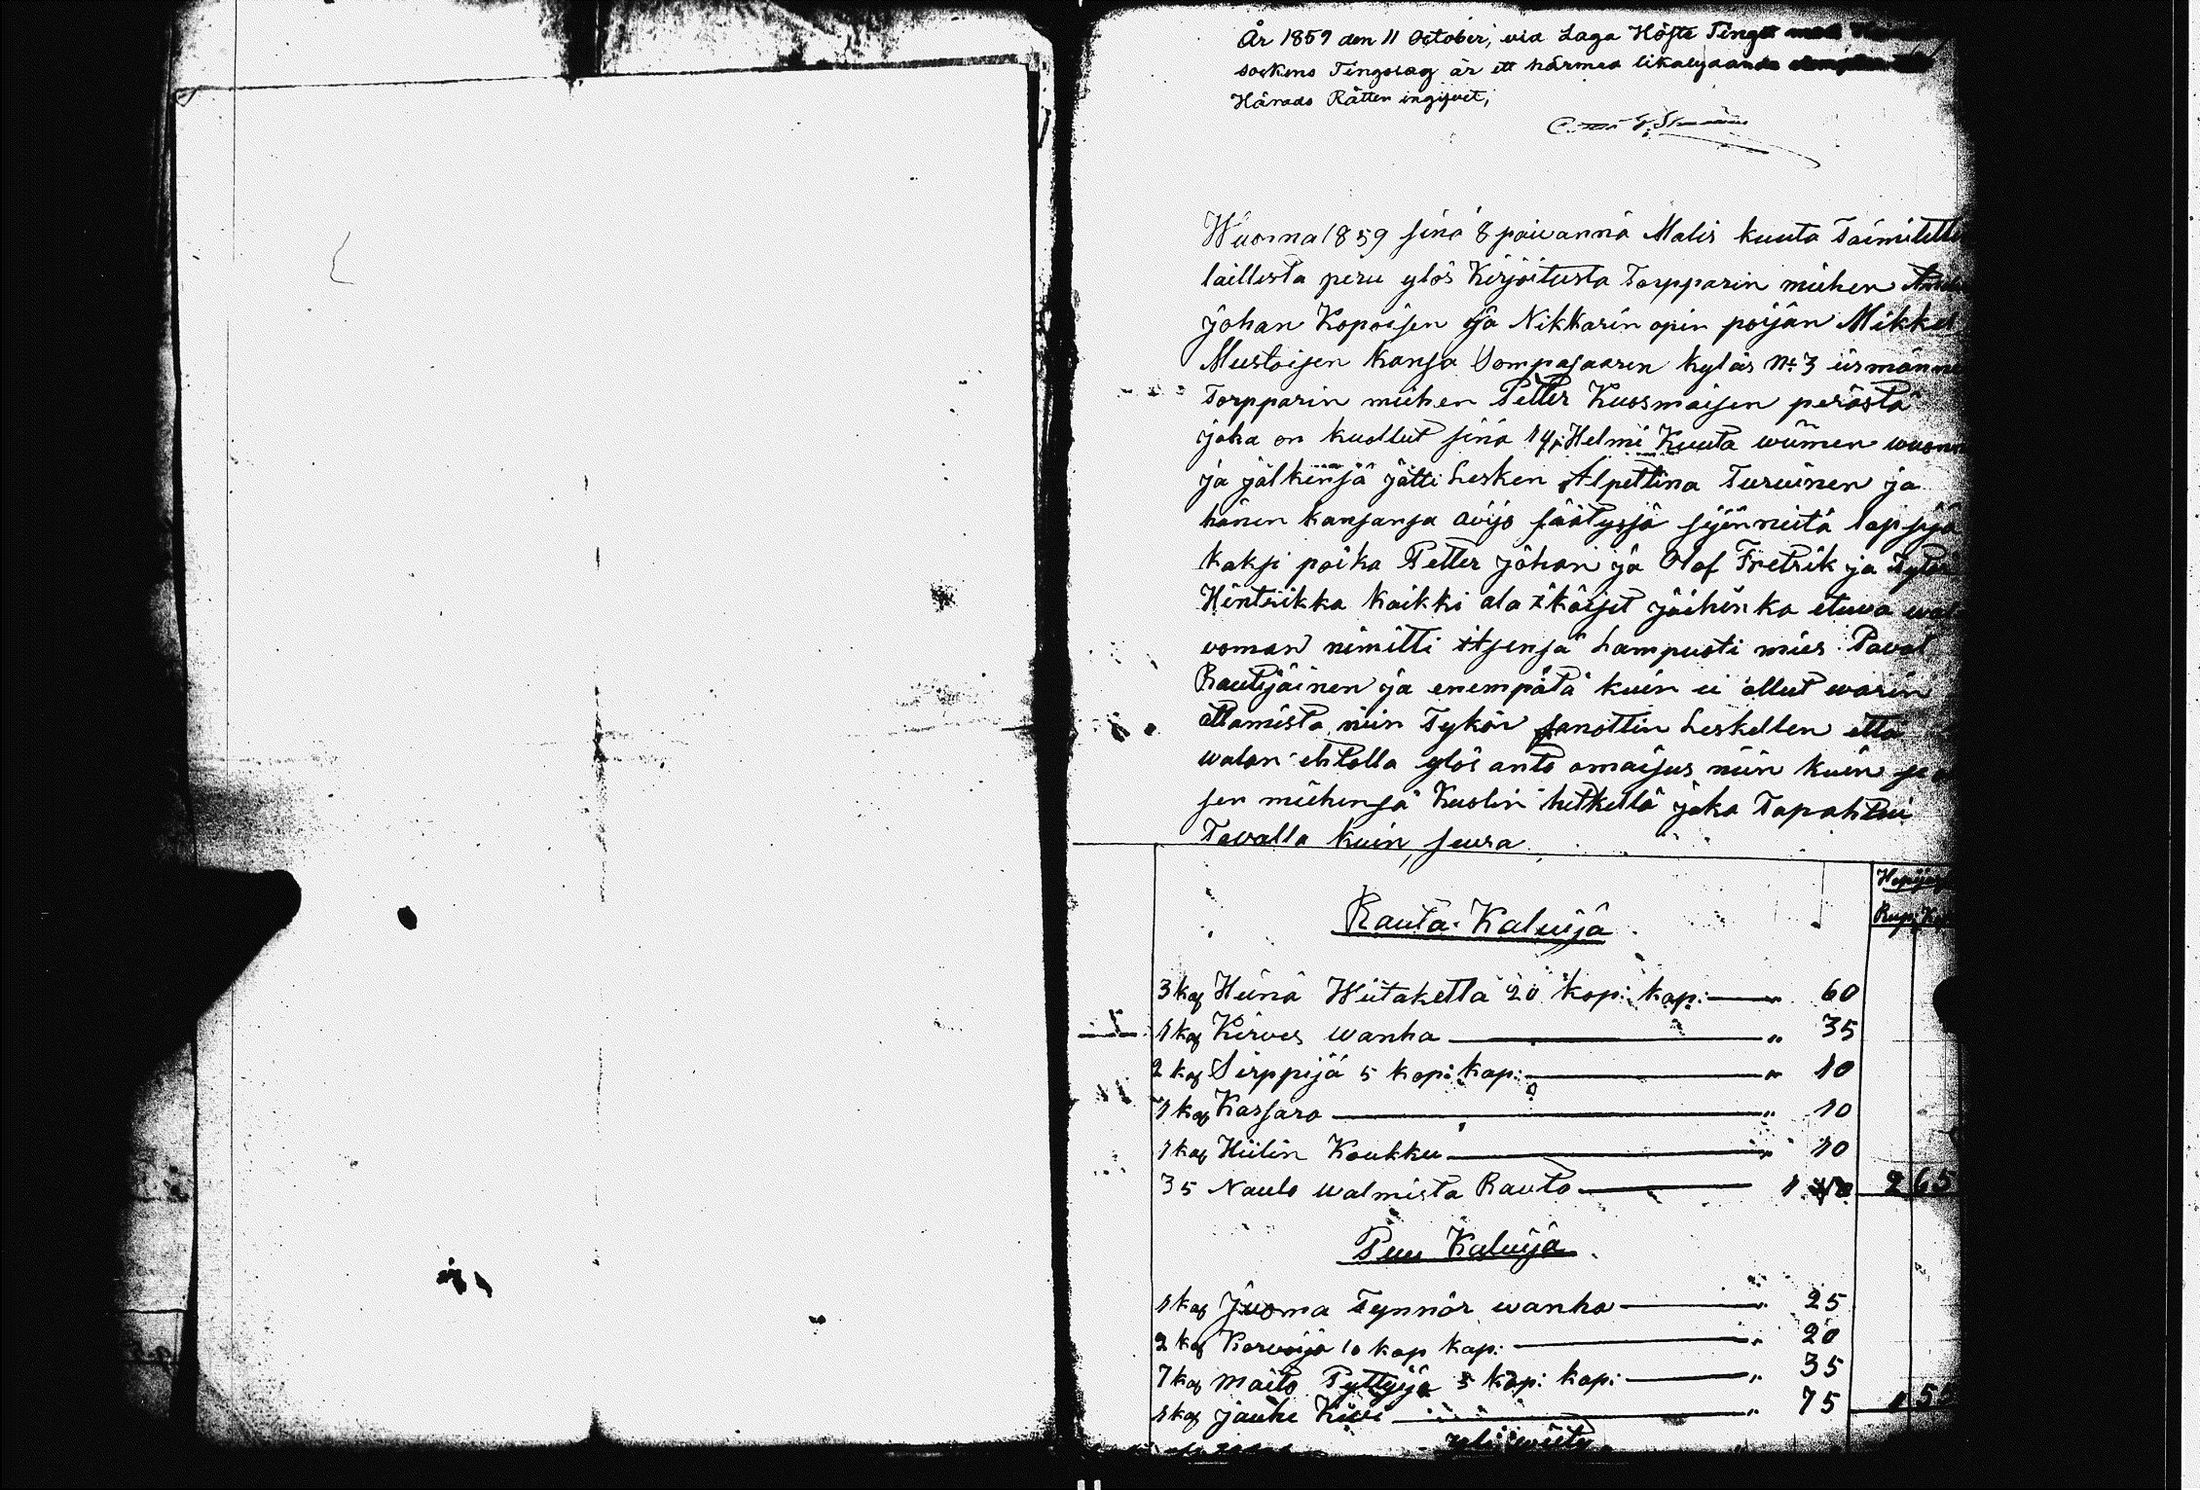 År 1859 den 11 October, vid Laga Höste Tinget med
sockens Tingslag är ett härmed likalydande
Härads Rätten ingifvet,
Wuonna 1859 sinä 8 päivännä Malis kuuta Taimitettu
laillista peru ylös Kirjoitusta Torpparin miehen
Johan Kopoisen ja Nikkarin opin poijan Mikkel
Mustoisen kansa Sompasaaren kyläs No 3 iismänne
Torpparin miehen Petter Kuosmaisen perästä
joka on kuollut sinä 14 Helmi Kuuta wiimen wuonn
ja jälkiinsä jätti Lesken Alpettina Turuinen ja
hänen kansansa avijo säätyssä syänneitä lapsija
kaksi poika Petter Johan ja Olaf Fretrik ja Tytär
Hintriikka kaikki ala ikäiset joihin ka etuva
voman nimitti itsensä Lampuoti mies Paval
Rautijainen ja enempätä kuin ei ollut warin
ottamista niin Tykör sanottin Leskellen että
walan ehtolla ylös anto omaisus niin kuin se
sen miehensä Kuolin hetkellä joka Tapahtui
Tavalla kuin seura
Rup: Kop
Rauta Kaluija
3 kap Hiinä Wiitaketta 20 kop: kap: — " 60
1 kap Kirves wanha — " 35
2 kap Sirppijä 5 kop: kap: — " 10
1 kap Kassara — " 10
1 kap Hiilin Koukku — " 10
35 Naulo walmista Rauto — 1 40 2 65
Puu Kaluija
1 kap Juoma Tynnör wanha — " 25
2 kap Korvoija 10 kop kap: — " 20
7 kap maito Pyttyijä 5 kop: kap: — " 35
1 kap jauhe Kivi — " 75 1 55